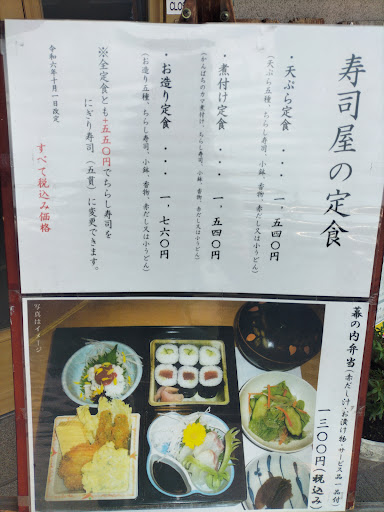 CLOS
寿司屋の定食
・天ぷら定食 ・・・ 一、五四〇円
(天ぷら五種、ちらし寿司、小鉢、香物、赤だし又は小うどん)
・煮付け定食 ・・・ 一、五四〇円
(かんぱちのカマ煮付け、ちらし寿司、小鉢、香物、赤だし又は小うどん)
・お造り定食 ・・・ 一、七六〇円
(お造り五種、ちらし寿司、小鉢、香物、赤だし又は小うどん)
※全定食とも+五五〇円でちらし寿司を
にぎり寿司(五貫)に変更できます。
すべて税込み価格
令和六年十月一日改定
幕の内弁当(赤だし汁・お漬け物・サービス品一品付)
一三〇〇円(税込み)
写真はイメージ